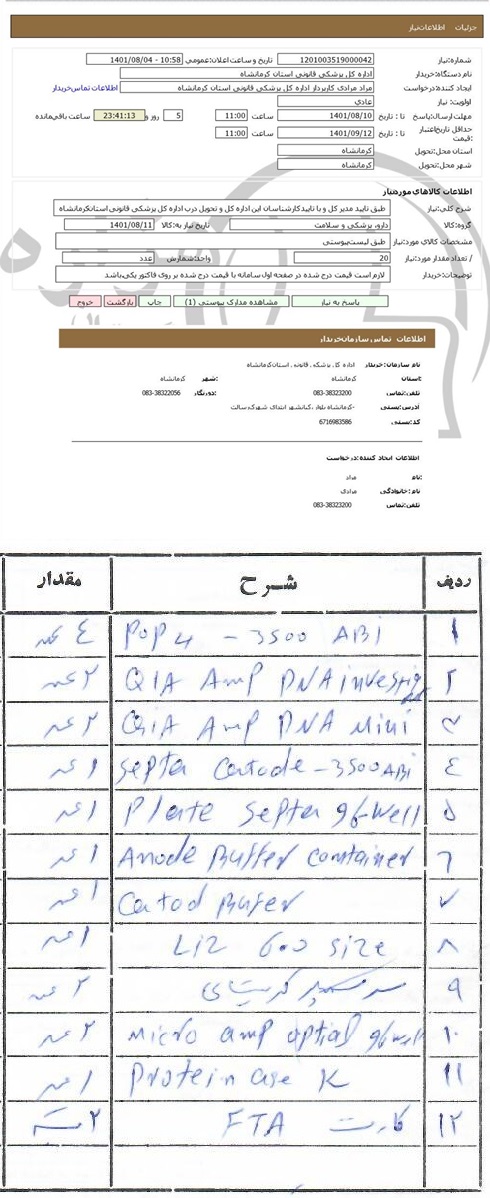 جزئیات اطلاعات نیاز
شماره نیاز: 1201003519000042 تاریخ و ساعت اعلان عمومی: 1401/08/04 - 10:58
نام دستگاه خریدار: اداره کل پزشکی قانونی استان کرمانشاه
ایجاد کننده درخواست: مراد مرادی کاربردار اداره کل پزشکی قانونی استان کرمانشاه اطلاعات تماس خریدار
اولویت نیاز: عادی
مهلت ارسال پاسخ: تا : تاریخ 1401/08/10 ساعت 11:00 5 روز و 23:41:13 ساعت باقی مانده
حداقل تاریخ اعتبار قیمت: تا : تاریخ 1401/09/12 ساعت 11:00
استان محل تحویل: کرمانشاه
شهر محل تحویل: کرمانشاه
اطلاعات کالاهای مورد نیاز
شرح کلی نیاز: طبق تایید مدیر کل و با تایید کارشناسان این اداره کل و تحویل درب اداره کل پزشکی قانونی استان کرمانشاه
گروه کالا: دارو، پزشکی و سلامت تاریخ نیاز به کالا: 1401/08/11
مشخصات کالای مورد نیاز: طبق لیست پیوستی
/ تعداد مقدار مورد نیاز: 20 واحد شمارش: عدد
توضیحات خریدار: لازم است قیمت درج شده در صفحه اول سامانه با قیمت درج شده بر روی فاکتور یکی باشد
پاسخ به نیاز مشاهده مدارک پیوستی (1) چاپ بازگشت خروج
اطلاعات تماس سازمان خریدار
نام سازمان خریدار: اداره کل پزشکی قانونی استان کرمانشاه
استان: کرمانشاه شهر: کرمانشاه
تلفن تماس: 083-38323200 دورنگار: 083-38322056
آدرس پستی: -کرمانشاه بلوار کیانشهر ابتدای شهرک رسالت
کد پستی: 6716983586
اطلاعات ایجاد کننده درخواست:
نام: مراد
نام خانوادگی: مرادی
تلفن تماس: 083-38323200
ردیف شرح مقدار
۱ POP4 - 3500 ABi ٤ عدد
۲ QIA Amp DNA investig ۲ عدد
۳ QiA Amp DNA Mini ۲ عدد
٤ septa Catode - 3500 ABi ۱ عدد
۵ Plate septa 96-Well ۱ عدد
۶ Anode Buffer container ۱ عدد
۷ Catod Bufer ۱ عدد
۸ Liz 600 size ۱ عدد
۹ ۲ عدد
۱۰ Micro amp optial 96 well ۲ عدد
۱۱ Protein ase K ۱ عدد
۱۲ کارت FTA ۲ بسته